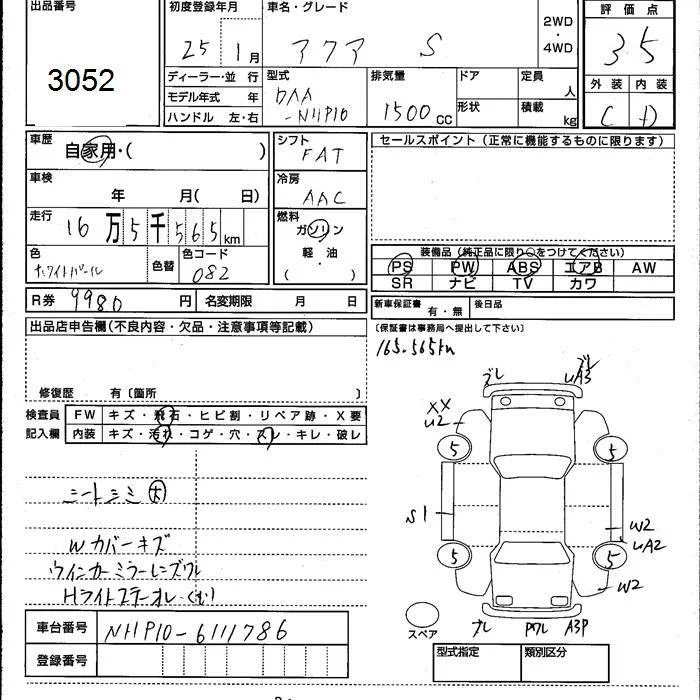 出品番号
3052
初度登録年月
25 1月
車名・グレード
アクア S
2WD
・
4WD
評価点
3.5
外装 内装
C D
ディーラー・並行
モデル年式 年
ハンドル 左・右
型式
DAA
-NHP10
排気量
1500CC
ドア
形状
定員 人
積載 kg
車歴
自家用・( )
車検
年 月( 日)
走行
16万5千565km
色
ホワイトパール
色替
色コード
082
シフト
FAT
冷房
AAC
燃料
ガソリン
軽・油
( )
セールスポイント(正常に機能するものに限ります)
装備品(純正品に限り○をつけてください)
PS PW ABS エアB AW
SR ナビ TV カワ
R券 9980円
名変期限 月 日
新車保証書 有・無
後日品
(保証書は事務局へ提出して下さい)
出品店申告欄(不良内容・欠品・注意事項等記載)
修復歴 有〔箇所 〕
165.565km
検査員
記入欄
FW キズ・飛石・ヒビ割・リペア跡・X要
内装 キズ・汚れ・コゲ・穴・スレ・キレ・破レ
シートシミ大
Wカバーキズ
ウインカーミラーレンズワレ
HライトステーオレくもC
ズレ
ズレ
UA3
XX
U2
5
5
S1
W2
UA2
5
5
W2
スペア
ズレ
Pワレ
A3P
車台番号 NHP10-6111786
登録番号
型式指定
類別区分